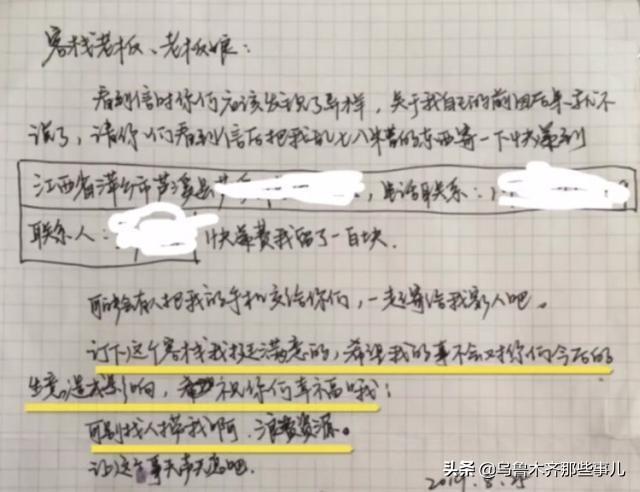 客栈老板、老板娘:
看到信时你们应该发现了异样,关于我自己的前因后果就不
说了,请你们看到信后把我乱七八糟的东西寄一下快递到
江西省萍乡市芦溪县 ,电话联系:
联系人: 快递费我留了一百块.
可能会有人把我的手机交给你们,一起寄给我家人吧。
订下这个客栈我挺满意的,希望我的事不会对你们今后的
生意造成影响, 祝你们幸福哦;
可别找人捞我啊,浪费资源。
让这事无声无息吧.
2019.
头条 @乌鲁木齐那些事儿